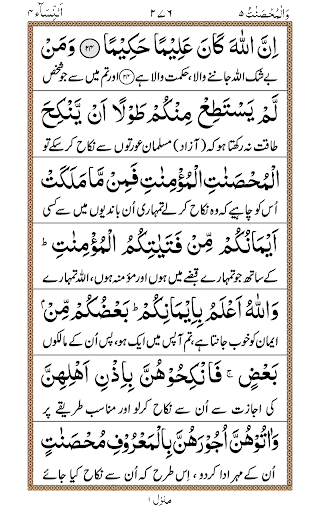 وَالْمُحْصَنٰتُ ۵ ۲۷۶ اَلنِّسَآء ۴
اِنَّ اللّٰهَ كَانَ عَلِيْمًا حَكِيْمًا ﴿۲۴﴾ وَمَنْ
بے شک اللہ جاننے والا، حکمت والا ہے ﴿۲۴﴾ اور تم میں سے جو شخص
لَّمْ يَسْتَطِعْ مِنْكُمْ طَوْلًا اَنْ يَّنْكِحَ
طاقت نہ رکھتا ہو کہ (آزاد) مسلمان عورتوں سے نکاح کر سکے تو
الْمُحْصَنٰتِ الْمُؤْمِنٰتِ فَمِنْ مَّا مَلَكَتْ
اُس کو چاہیے کہ وہ نکاح کر لے تمہاری اُن باندیوں میں سے کسی
اَيْمَانُكُمْ مِّنْ فَتَيٰتِكُمُ الْمُؤْمِنٰتِ ؕ
کے ساتھ جو تمہارے قبضے میں ہوں اور مؤمنہ ہوں، اللہ تمہارے
وَاللّٰهُ اَعْلَمُ بِاِيْمَانِكُمْ ؕ بَعْضُكُمْ مِّنْۢ
ایمان کو خوب جانتا ہے، تم آپس میں ایک ہو، پس اُن کے مالکوں
بَعْضٍ ۚ فَانْكِحُوْهُنَّ بِاِذْنِ اَهْلِهِنَّ
کی اجازت سے اُن سے نکاح کر لو اور مناسب طریقے پر
وَاٰتُوْهُنَّ اُجُوْرَهُنَّ بِالْمَعْرُوْفِ مُحْصَنٰتٍ
اُن کے مہر ادا کردو، اِس طرح کہ اُن سے نکاح کیا جائے
منزل ۱